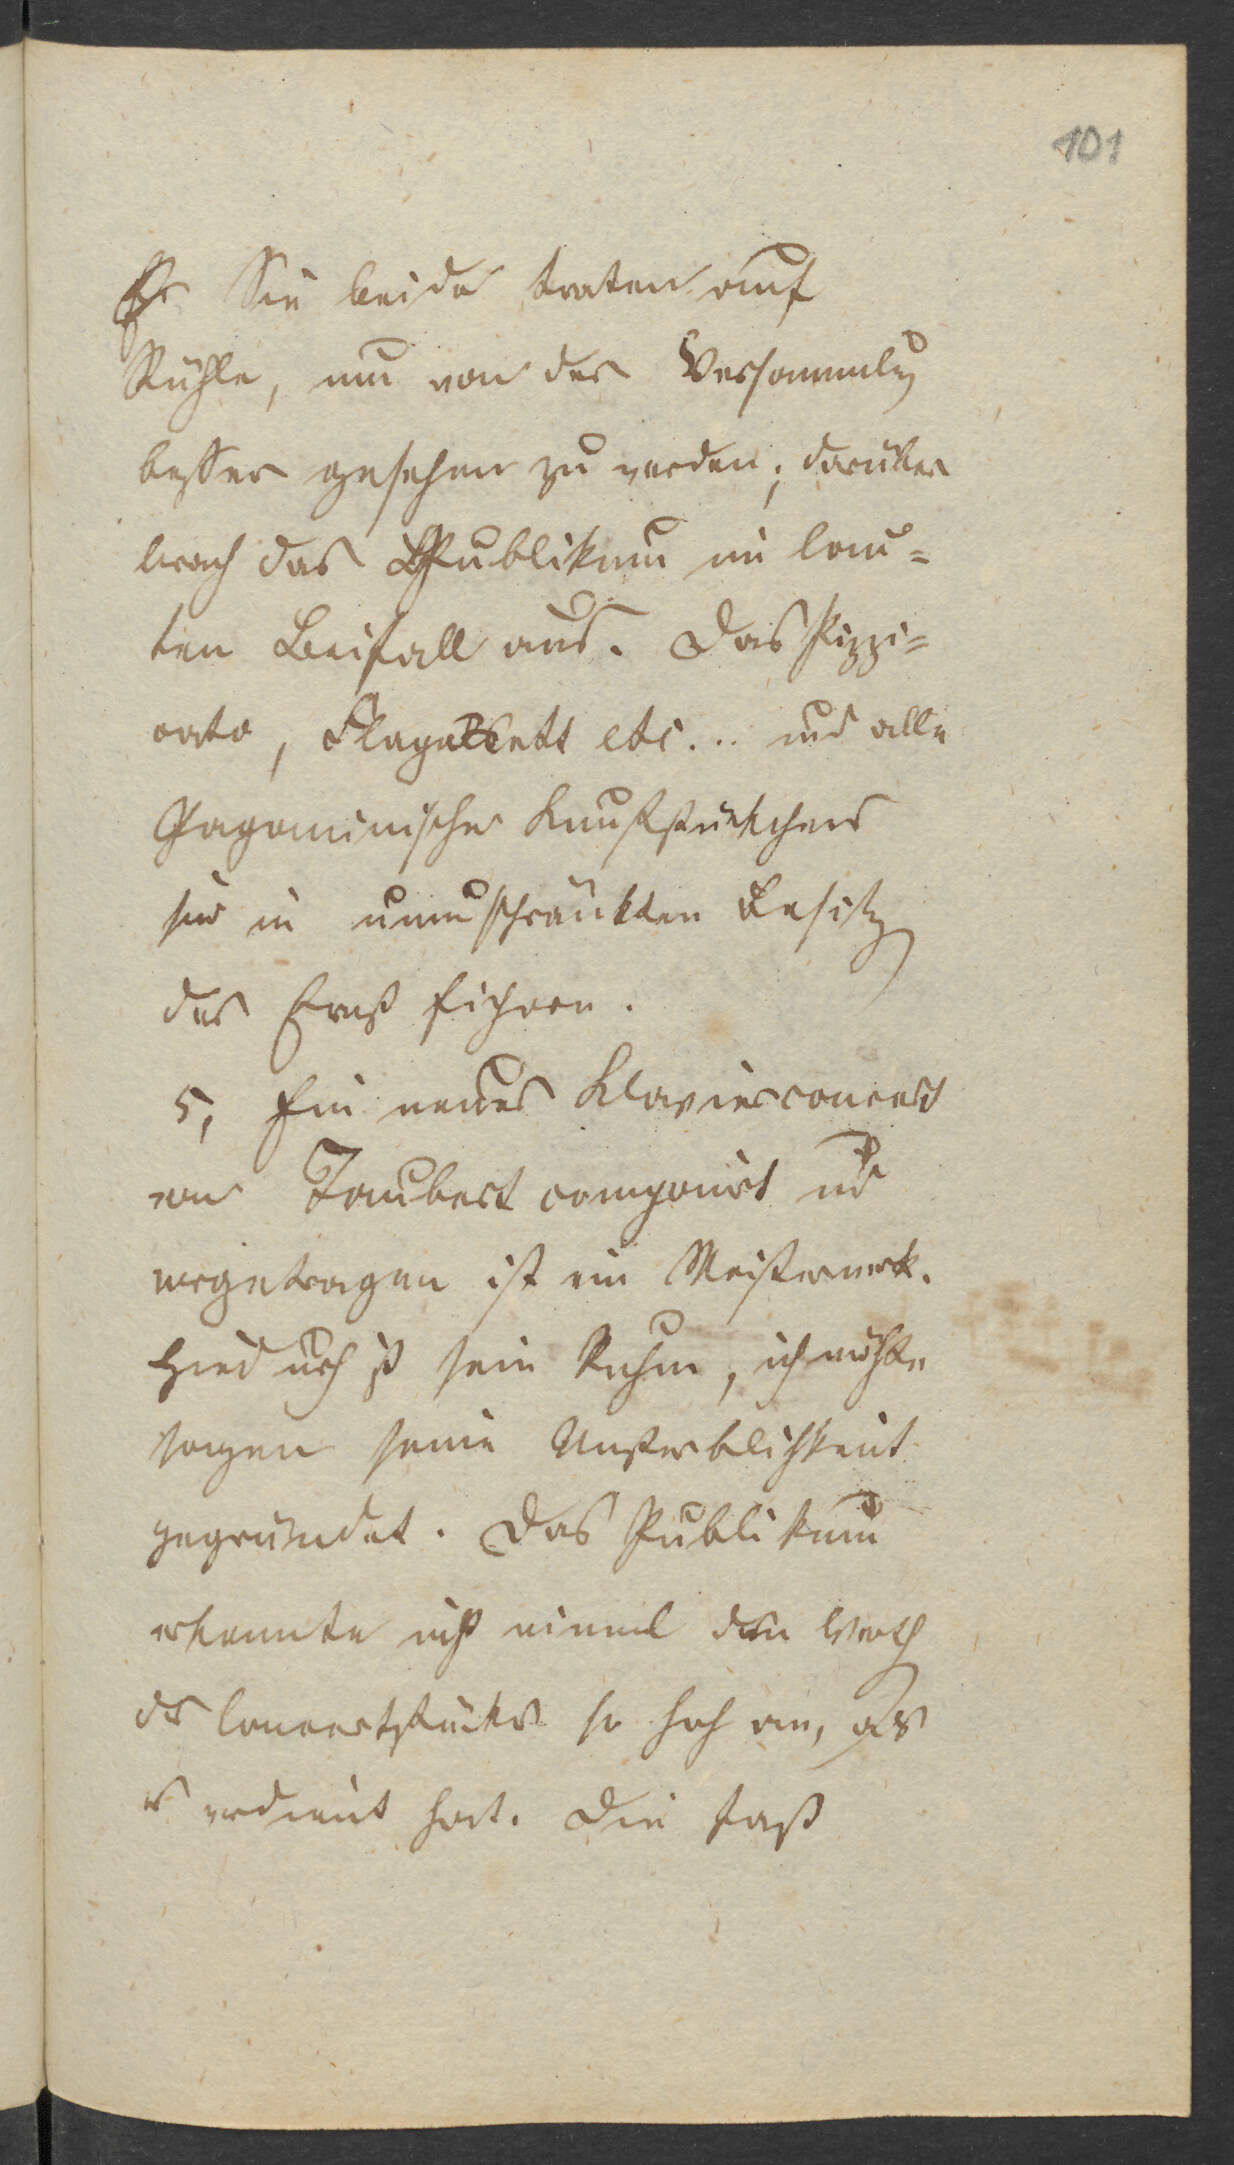 101
Sie beide traten auf
Stühle, um von der Versammlg
besser gesehen zu werden; darüber
brach das Publikum in lau=
ten Beifall aus. Das Pizzi=
cato, Flageolett etc... und alle
Paganinischen Kunststückchens
sind in unumschränkten Besitz
der Ernst
5, Ein neues Klavierconcert
von Taubert componirt und
vorgetragen ist ein Meisterwerk.
Hiedurch ist sein Ruhm, ich möchte
sagen seine Unsterblichkeit
gegründet. Das Publikum
erkannte nicht einmal den Werth
des Concertstücks so hoch an, als
es verdient hat. Die fast